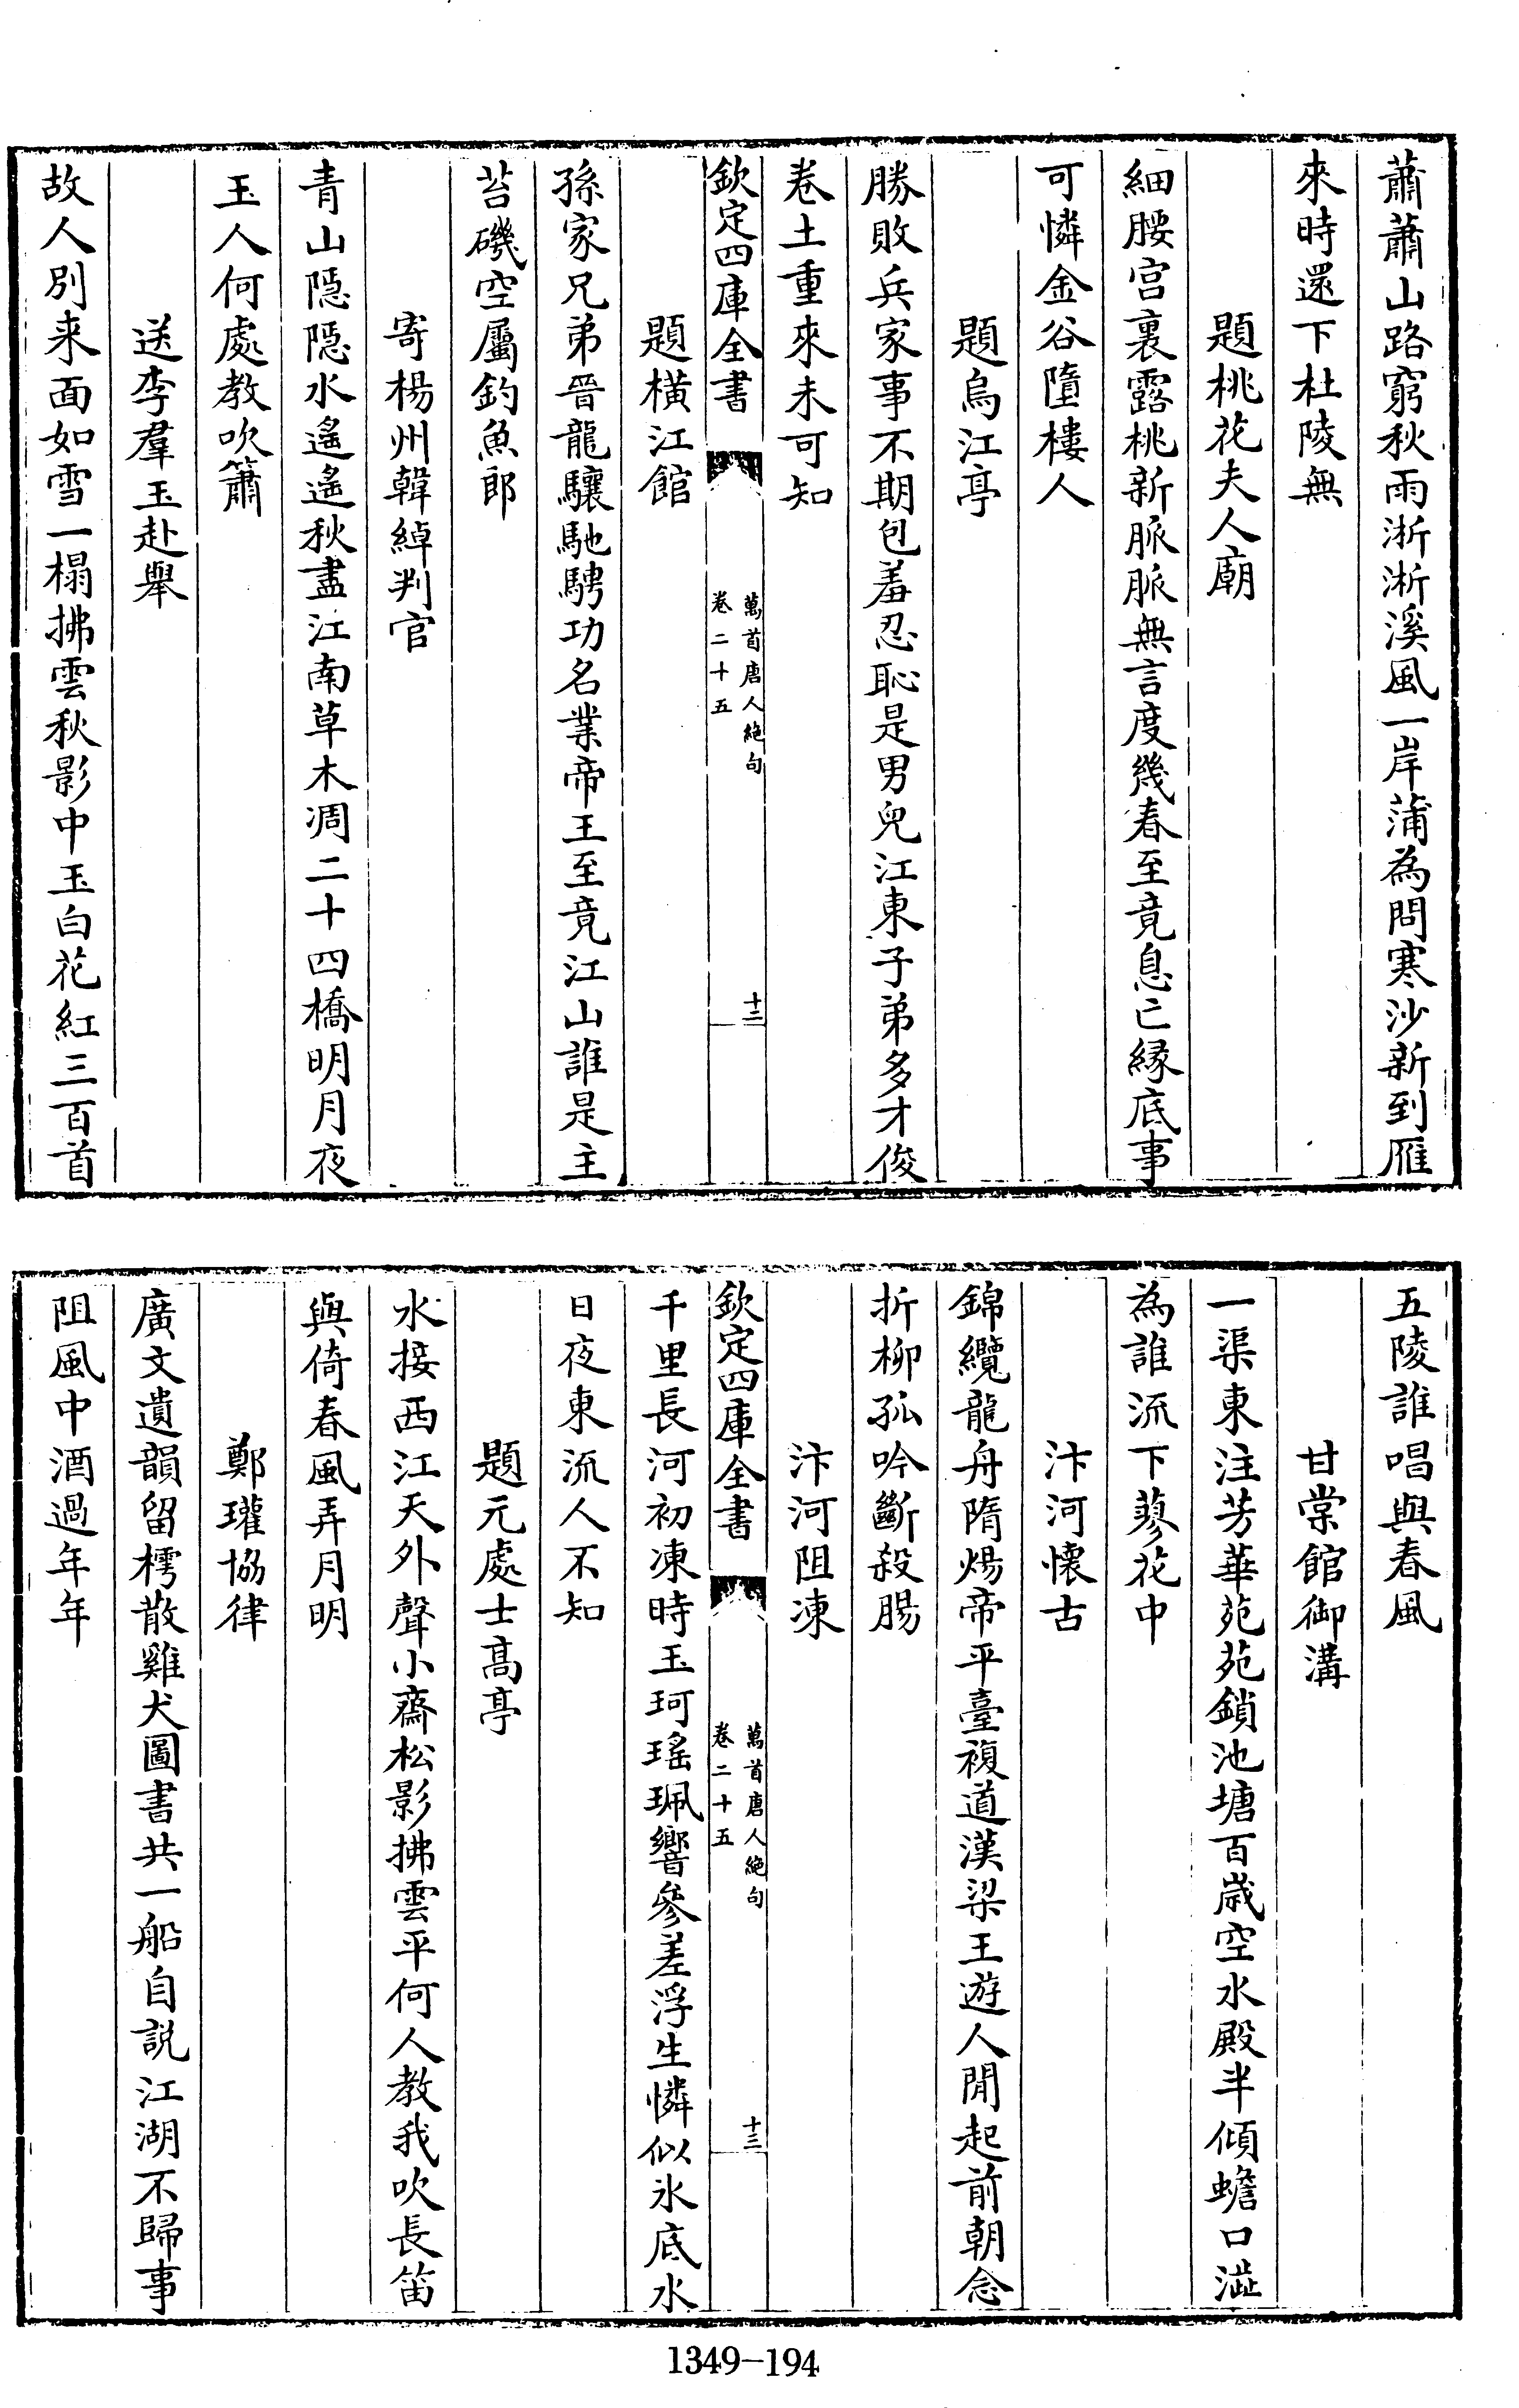 蕭蕭山路窮秋雨淅淅溪風一岸蒲為問寒沙新到雁
來時還下杜陵無
題桃花夫人廟
細腰宫裏露桃新脈脈無言度幾春至竟息亡縁底事
可憐金谷墮樓人
題烏江亭
勝敗兵家事不期包羞忍恥是男兒江東子弟多才俊
卷土重來未可知
欽定四庫全書
萬首唐人絶句
卷二十五
十二
題橫江館
孫家兄弟晉龍驤馳騁功名業帝王至竟江山誰是主
苔磯空屬釣魚郎
寄楊州韓綽判官
青山隱隱水遙遙秋盡江南草木凋二十四橋明月夜
玉人何處教吹簫
送李羣玉赴舉
故人別来面如雪一榻拂雲秋影中玉白花紅三百首
五陵誰唱與春風
甘棠館御溝
一渠東注芳華苑苑鎖池塘百歲空水殿半傾蟾口澁
為誰流下蓼花中
汴河懷古
錦纜龍舟隋煬帝平臺複道漢梁王遊人閒起前朝念
折柳孤吟斷殺腸
汴河阻凍
欽定四庫全書
萬首唐人絶句
卷二十五
十三
千里長河初凍時玉珂瑤珮響參差浮生憐似氷底水
日夜東流人不知
題元處士高亭
水接西江天外聲小齋松影拂雲平何人教我吹長笛
與倚春風弄月明
鄭瓘協律
廣文遺韻留樗散雞犬圖書共一船自説江湖不歸事
阻風中酒過年年
1349-194